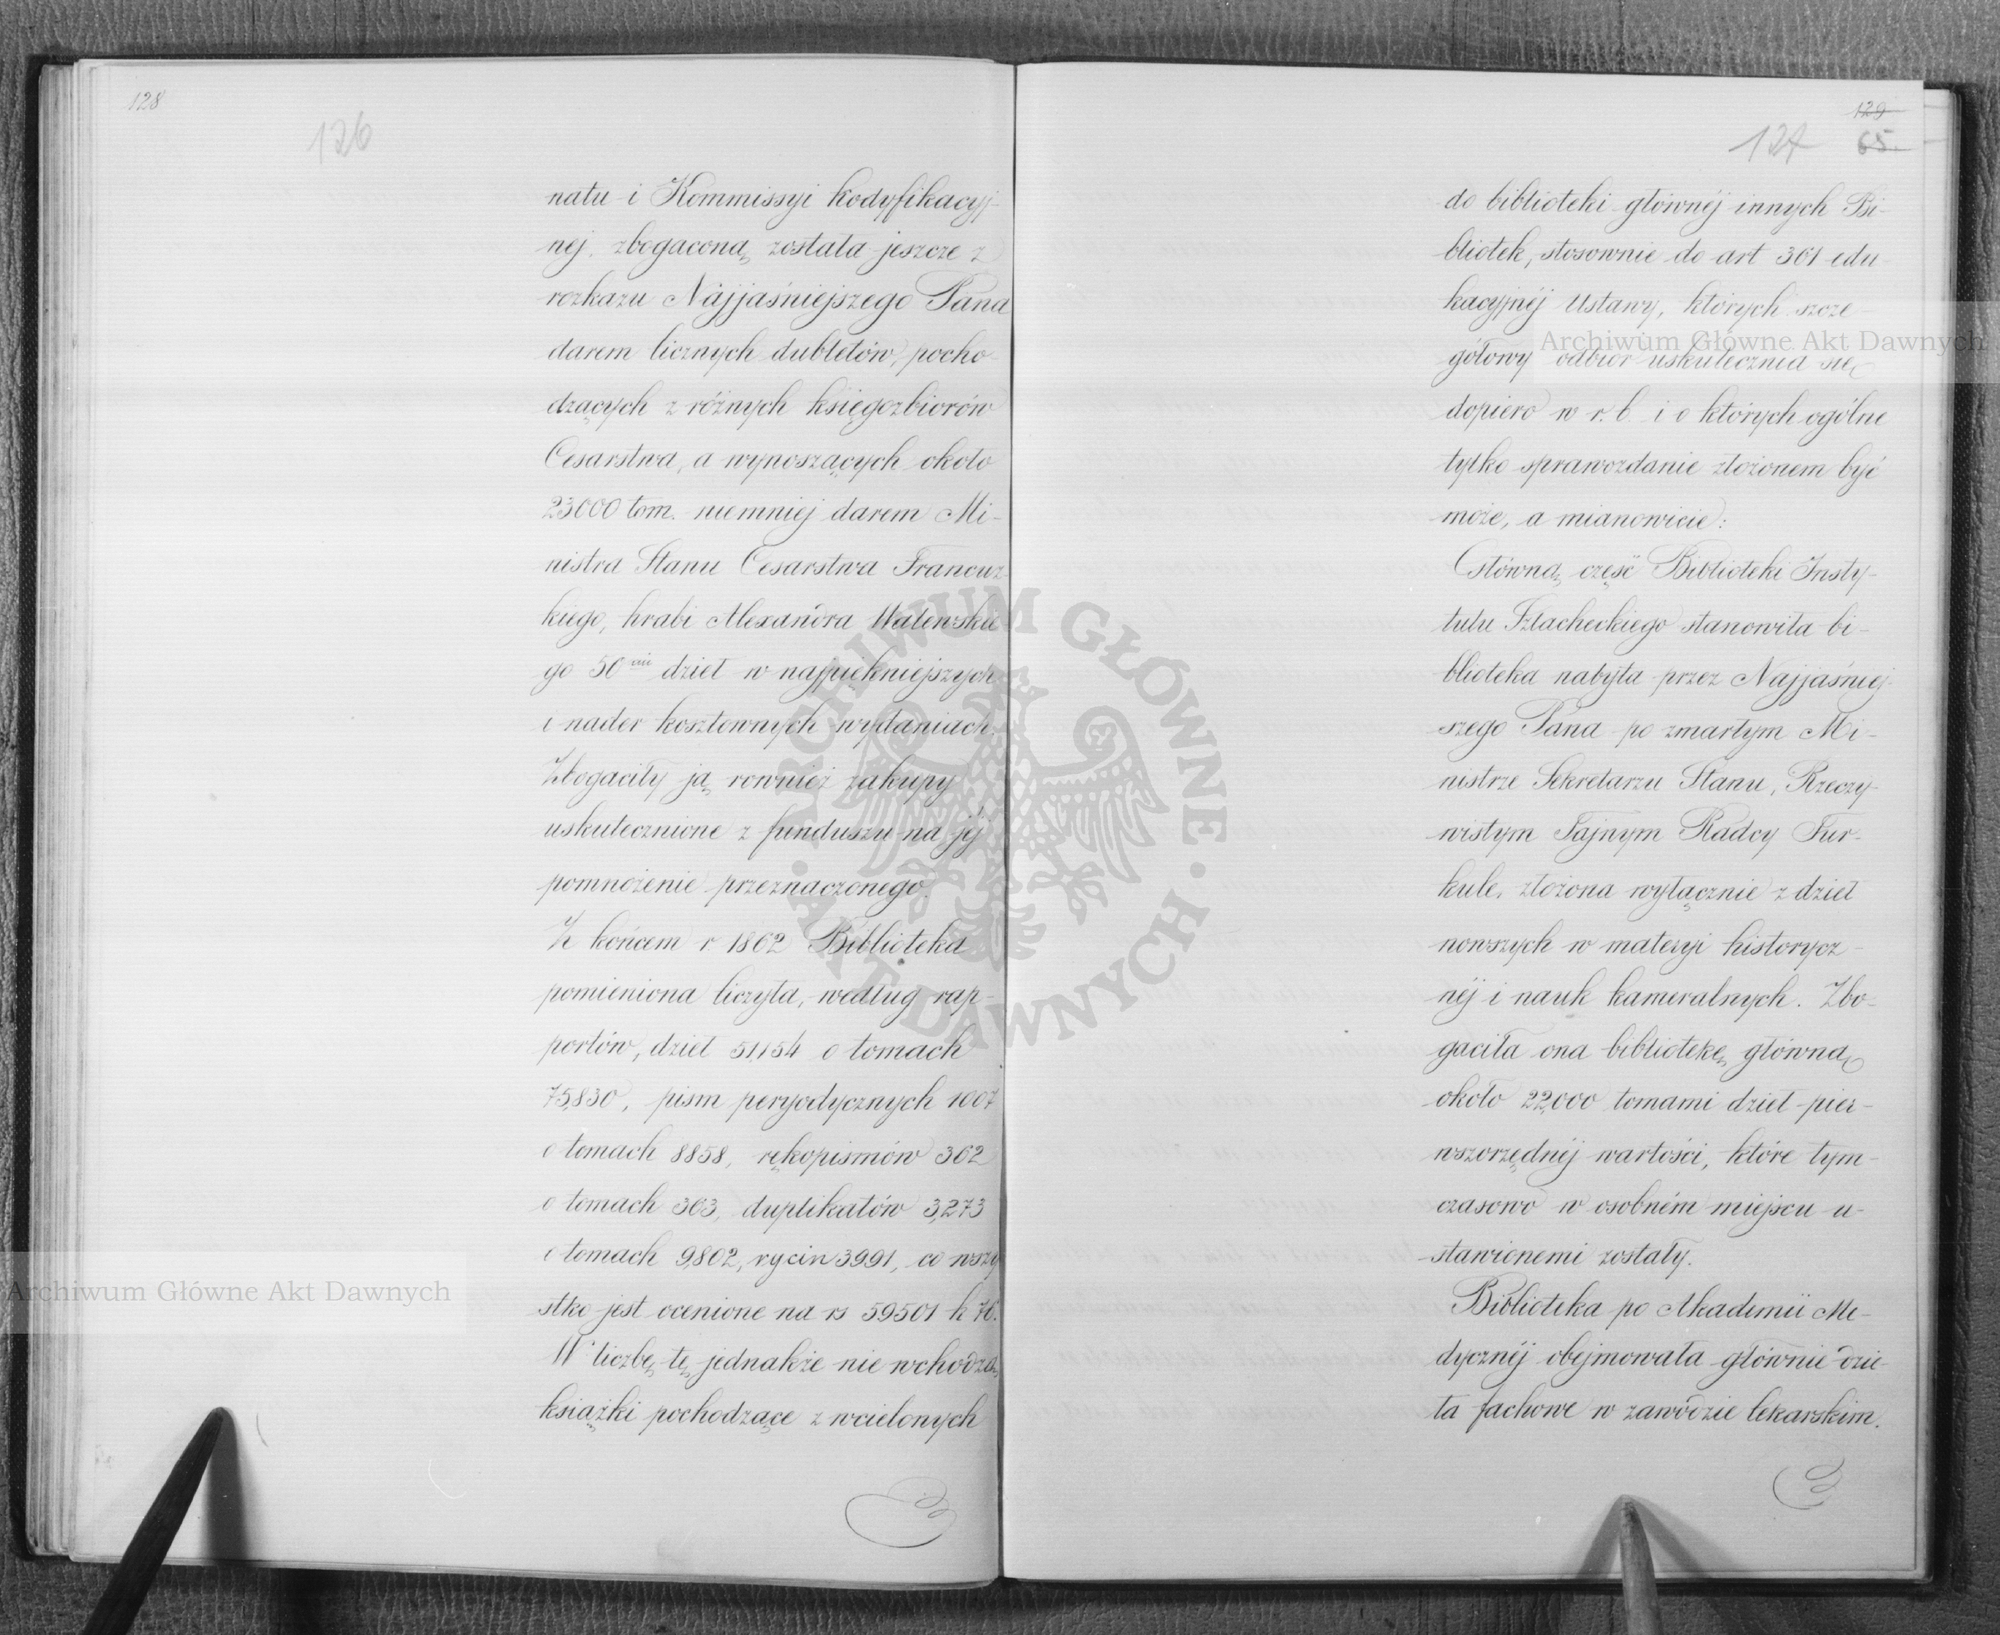 128
126
natu i Kommissyi Kodyfikacyj-
nej, zbogaconą została jeszcze z
rozkazu Najjaśniejszego Pana
darem licznych dubletów, pocho-
dzących z różnych księgozbiorów
Cesarstwa, a wynoszących około
23000 tom. niemniej darem Mi-
nistra Stanu Cesarstwa Francuz-
kiego, hrabi Alexandra Walewskie
go 50iu dzieł w najpiękniejszych
i nader kosztownych wydaniach.
Zbogaciły ją rownież zakupy
uskutecznione z funduszu na jéj
pomnożenie przeznaczonego.
Z końcem r 1862 Biblioteka
pomieniona liczyła, według rap-
portów, dzieł 51,154 o tomach
75,830, pism peryodycznych 1007
o tomach 8858, rękopismów 362
o tomach 363, duplikatów 3,273
o tomach 9,802, rycin 3991, co wszy
stko jest ocenione na rs 59501 k 76.
W liczbę tę jednakże nie wchodzą
książki pochodzące z wcielonych
129
127 65.
do biblioteki głównéj innych Bi-
bliotek, stosownie do art 361 edu
kacyjnéj Ustawy, których szcze-
gółowy odbiór uskutecznia się
dopiero w r. b. i o których ogólne
tylko sprawozdanie złożonem być
może, a mianowicie:
Główną część Biblioteki Insty-
tutu Szlacheckiego stanowiła bi-
blioteka nabyta przez Najjaśniej-
szego Pana po zmarłym Mi-
nistrze Sekretarzu Stanu, Rzeczy-
wistym Tajnym Radcy Tur-
kule, złożona wyłącznie z dzieł
nowszych w materyi historycz-
néj i nauk kameralnych. Zbo-
gaciła ona bibliotekę główną
około 22,000 tomami dzieł pier-
wszorzędnéj wartości, które tym-
czasowo w osobném miejscu u-
stawionemi zostały.
Biblioteka po Akademii Me-
dycznéj obejmowała głównie dzie-
ła fachowe w zawodzie lekarskim.
Archiwum Główne Akt Dawnych
Archiwum Główne Akt Dawnych
ARCHIWUM GŁÓWNE · AKT DAWNYCH ·